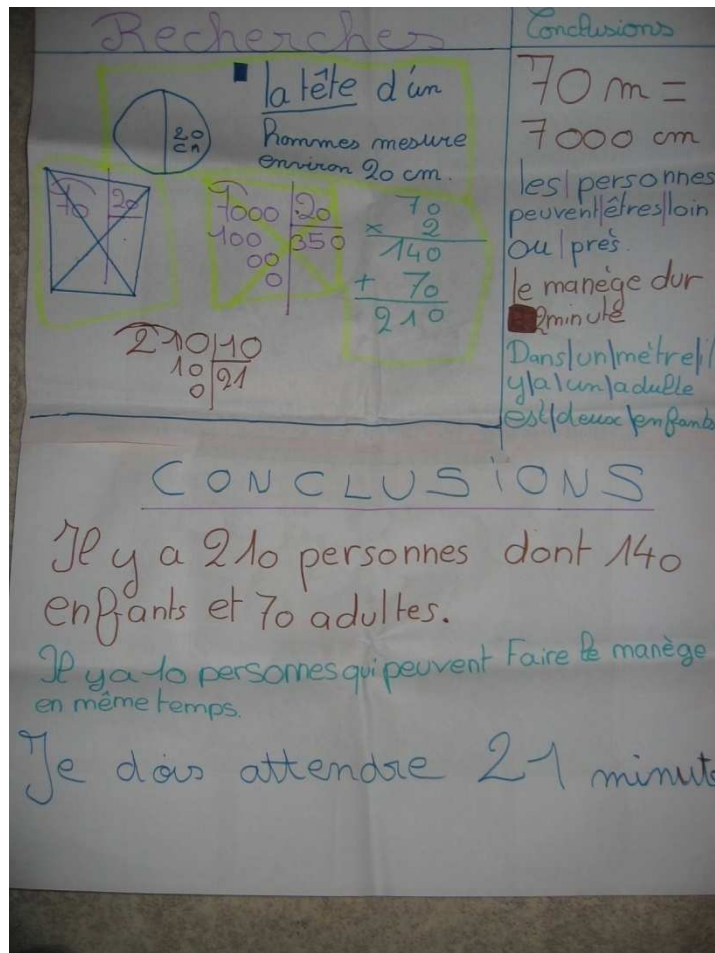 Recherches
la tête d'un
hommes mesure
environ 20 cm.
20
cm
70 20
7000 20
100 350
00
0
70
x 2
140
+ 70
210
210 10
10 21
0
Conclusions
70 m =
7000 cm
les personnes
peuvent êtres loin
ou près.
le manège dur
2minute
Dans un mètre il
y a un adulte
est deux enfants
CONCLUSIONS
Il y a 210 personnes dont 140
enfants et 70 adultes.
Il y a 10 personnes qui peuvent Faire le manège
en même temps.
Je dois attendre 21 minut